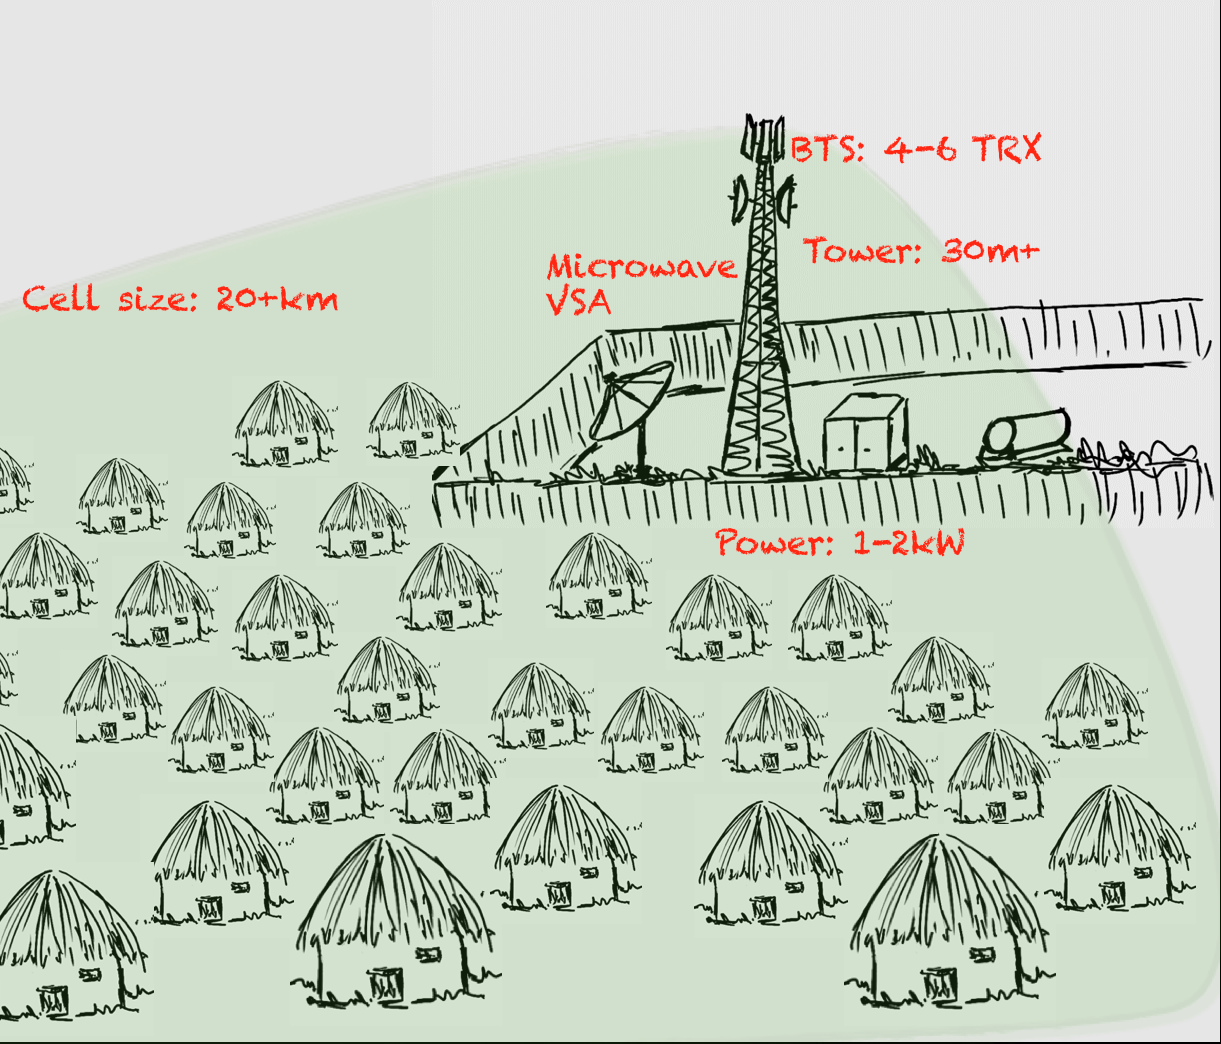 BTS: 4-6 TRX
Tower: 30m+
Microwave
VSA
Cell size: 20+km
Power: 1-2kW